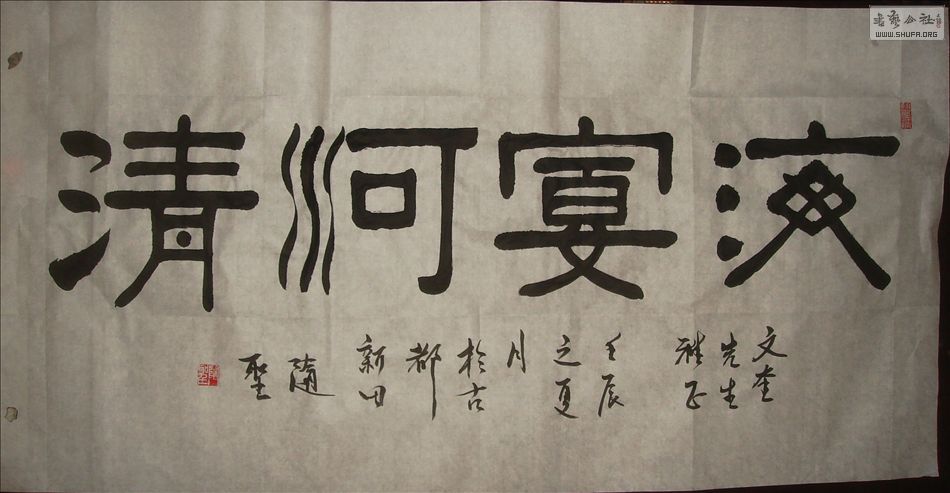 海宴河清
文奎
先生
雅正
壬辰
之夏
月
於古
都
新田
隨
聖
書藝公社
WWW.SHUFA.ORG